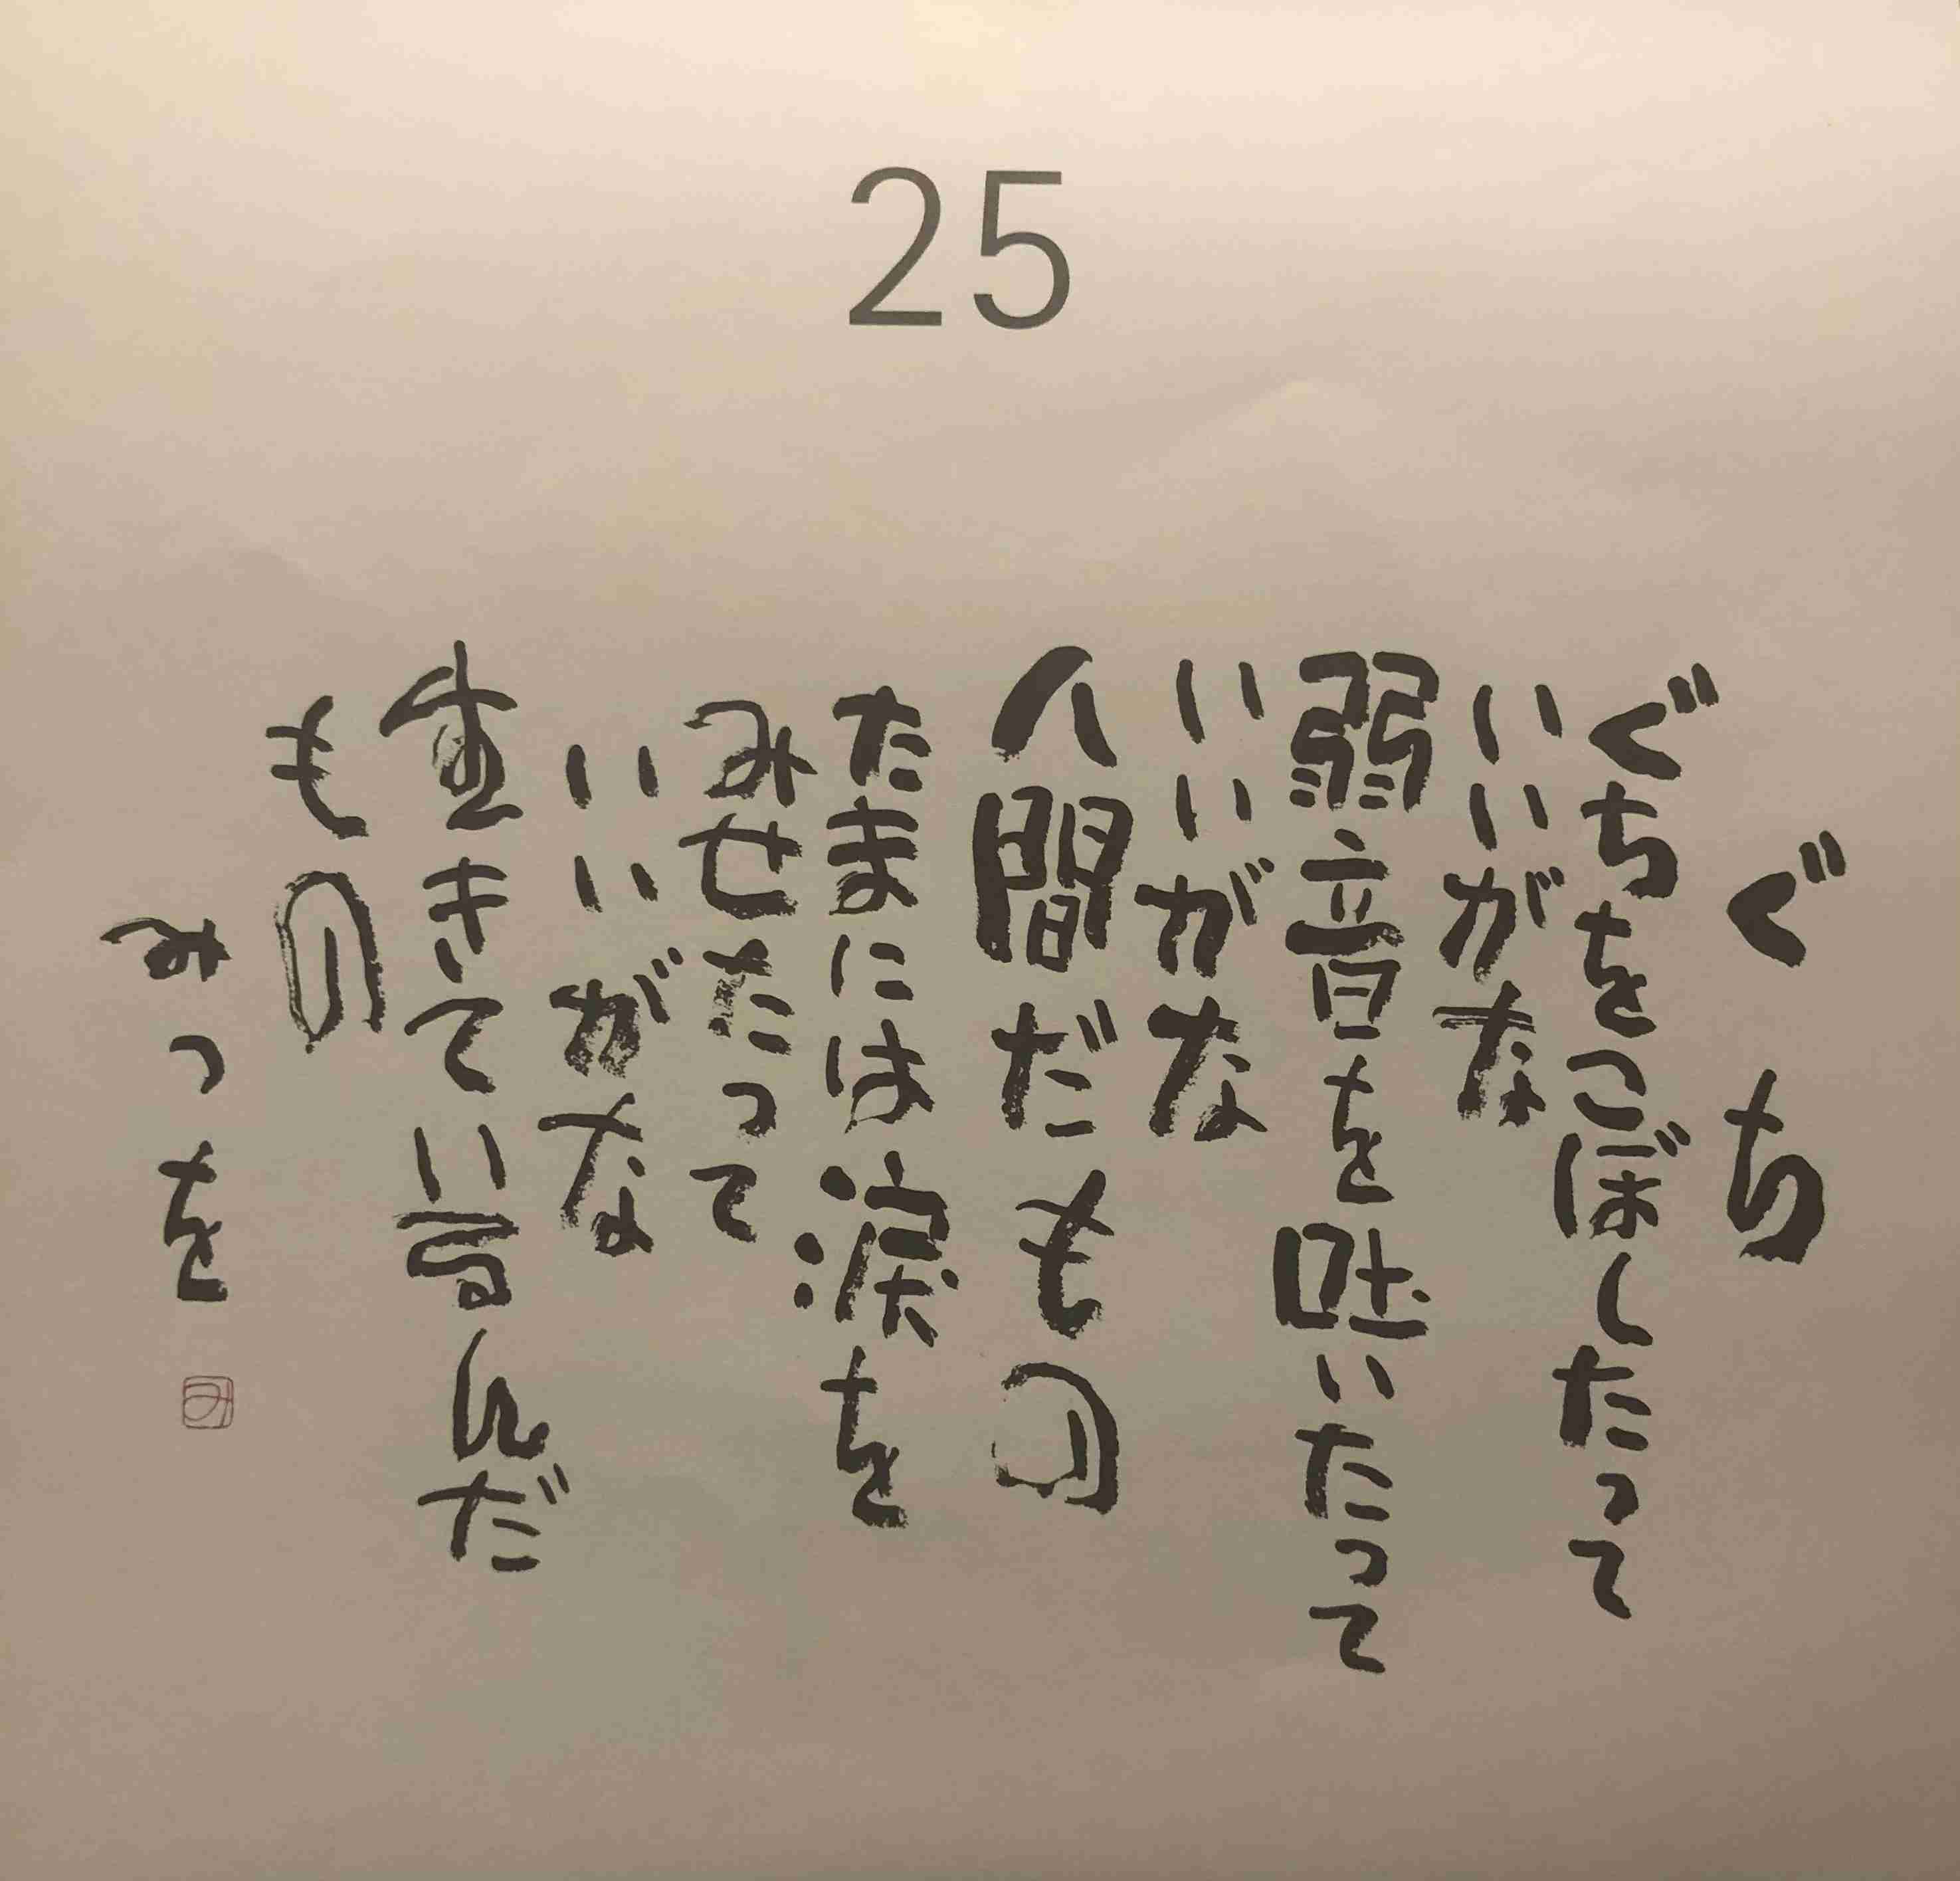 25
ぐち
ぐちをこぼしたって
いいがな
弱音を吐いたって
いいがな
人間だもの
たまには涙を
みせたって
いいがな
生きているんだ
もの
みつを
み